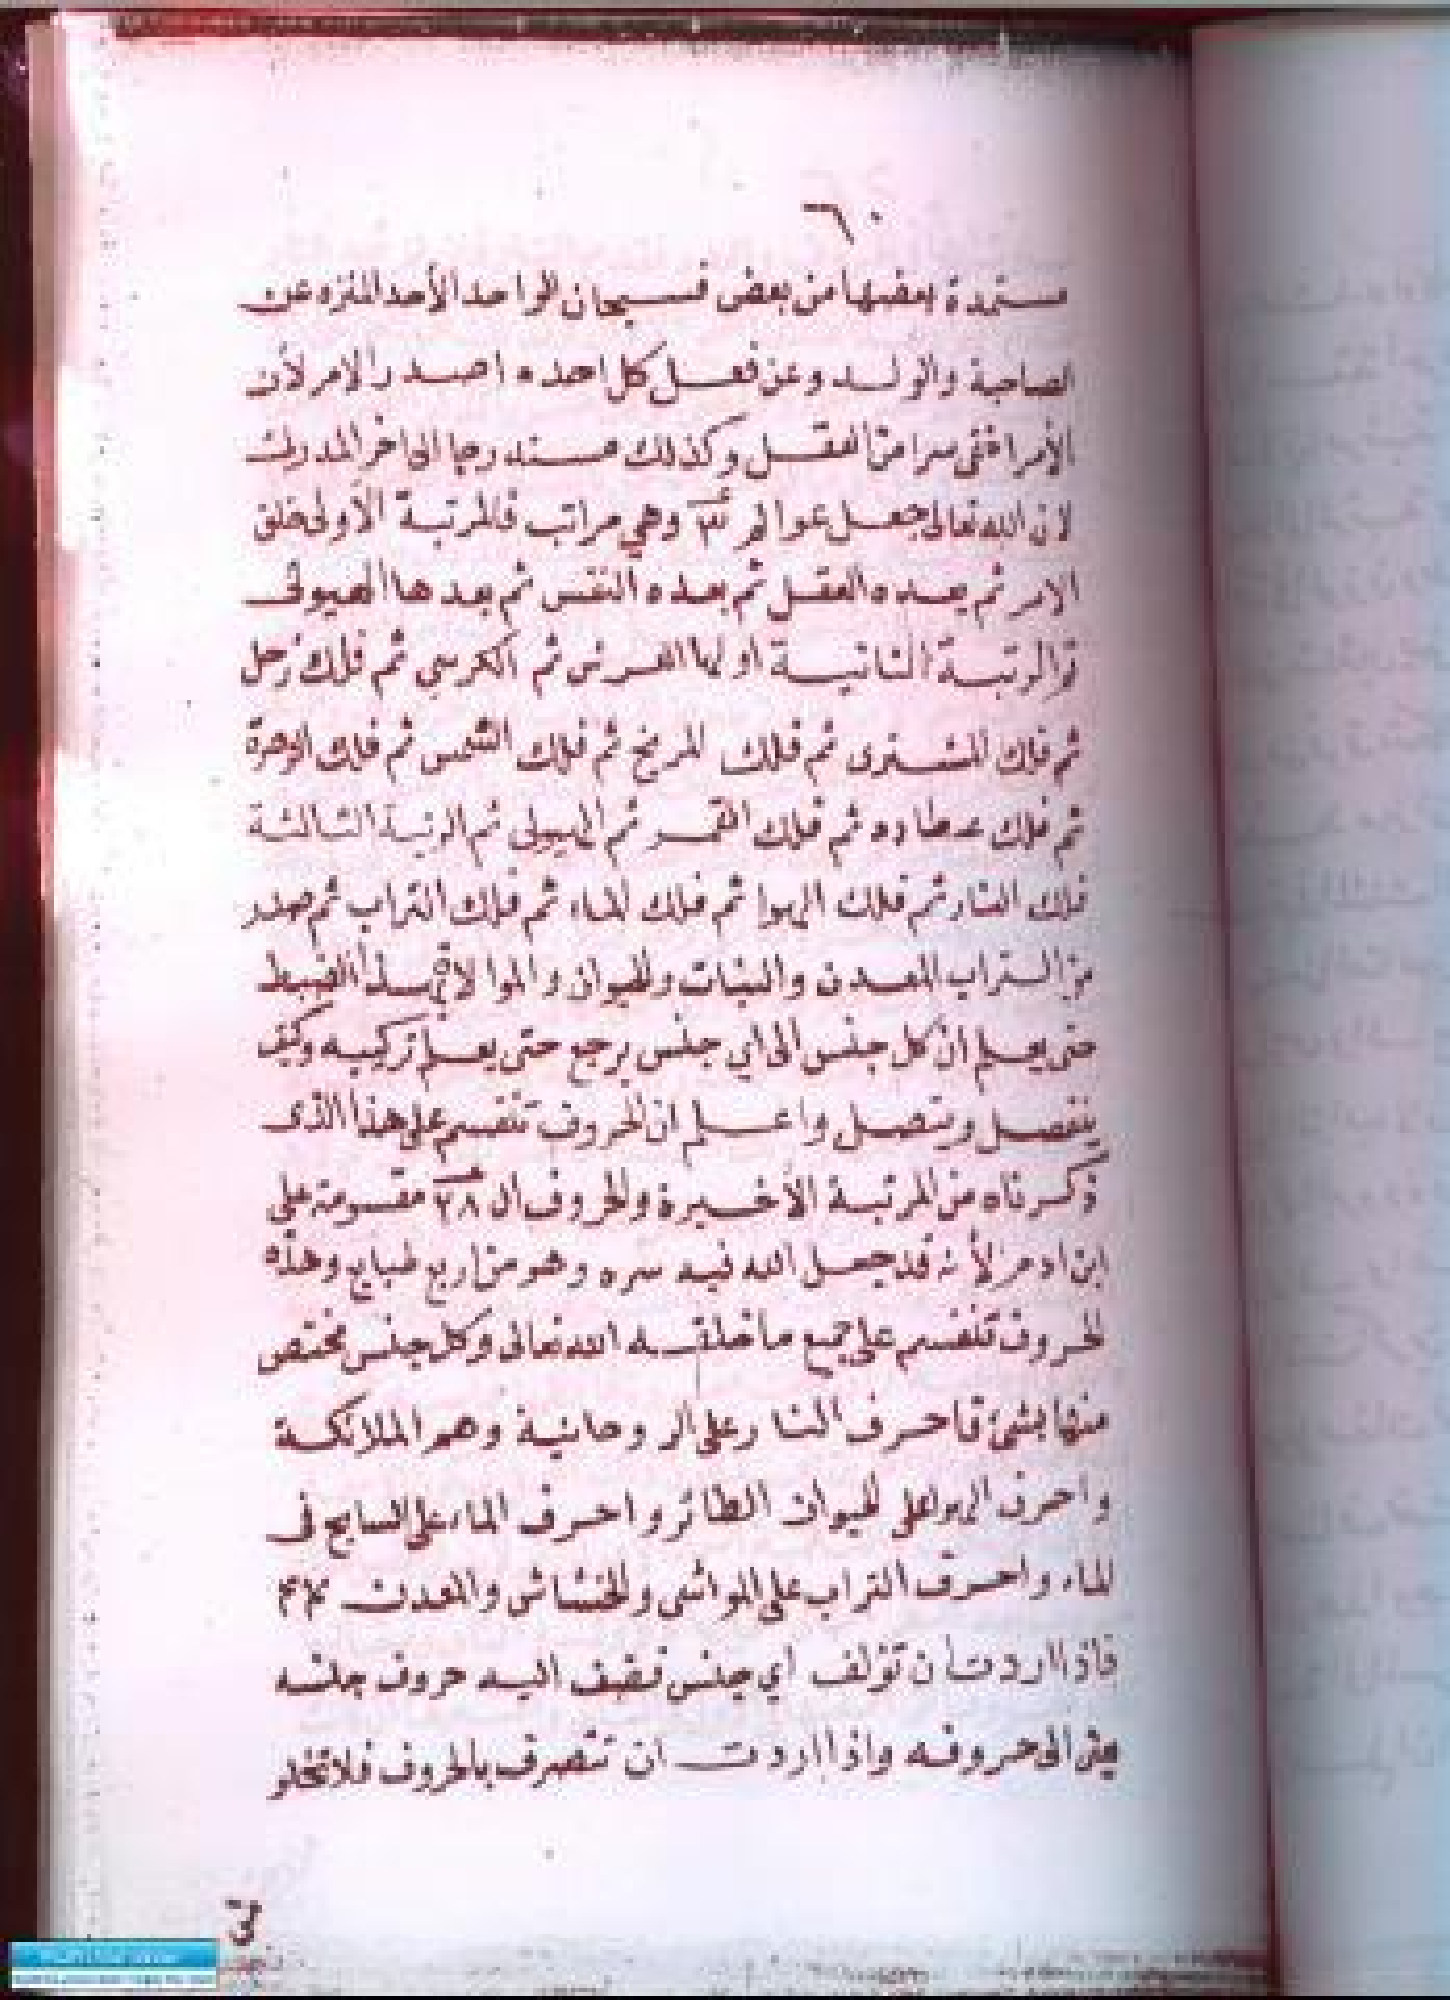 ٦٠
مستمدة بعضها من بعض فسبحان الواحد الأحد المنزه عن
الصاحبة والولد وعن فعل كل احد ه اصدر الامر لأن
الأمر اخفى سرا من العقل وكذلك مستدرجا الى اخر
لان الله تعالى جعل عوالم وهي مراتب فالمرتبة الأولى خلق
الامر ثم بعده العقل ثم بعده النفس ثم بعدها الهيولى
والرتبة الثانية اولها العرش ثم الكرسي ثم فلك زحل
ثم فلك المشترى ثم فلك المريخ ثم فلك الشمس ثم فلك الزهرة
ثم فلك عطارد ثم فلك القمر ثم الهيولى ثم الرتبة الثالثة
فلك النار ثم فلك الهوا ثم فلك الماء ثم فلك التراب ثم صدر
من التراب المعدن والنبات والحيوان والموا لهذا الضبط
حتى يعلم ان كل جنس الى اي جنس يرجع حتى يعلم تركيبه وكيف
ينفصل ويتصل واعلم ان الحروف تنقسم على هذا الذى
ذكرناه من المرتبة الأخيرة والحروف ال ٢٨ مقسومة على
ابن ادم لأنه قد جعل الله فيه سره وهو من اربع طبايع وهذه
الحروف تنقسم على جميع ما خلقه الله تعالى وكل جنس مختص
منها بشئ فاحرف النار على الروحانية وهم الملائكة
واحرف الهوا على الحيوان الطائر واحرف الماء على السابح فى
الماء واحرف التراب على المواشى والخشاش والمعدن
فاذا اردت ان تؤلف اي جنس فضف اليه حروف جنسه
يعنى الى حروفه واذا اردت ان تتصرف بالحروف فلا تخلو